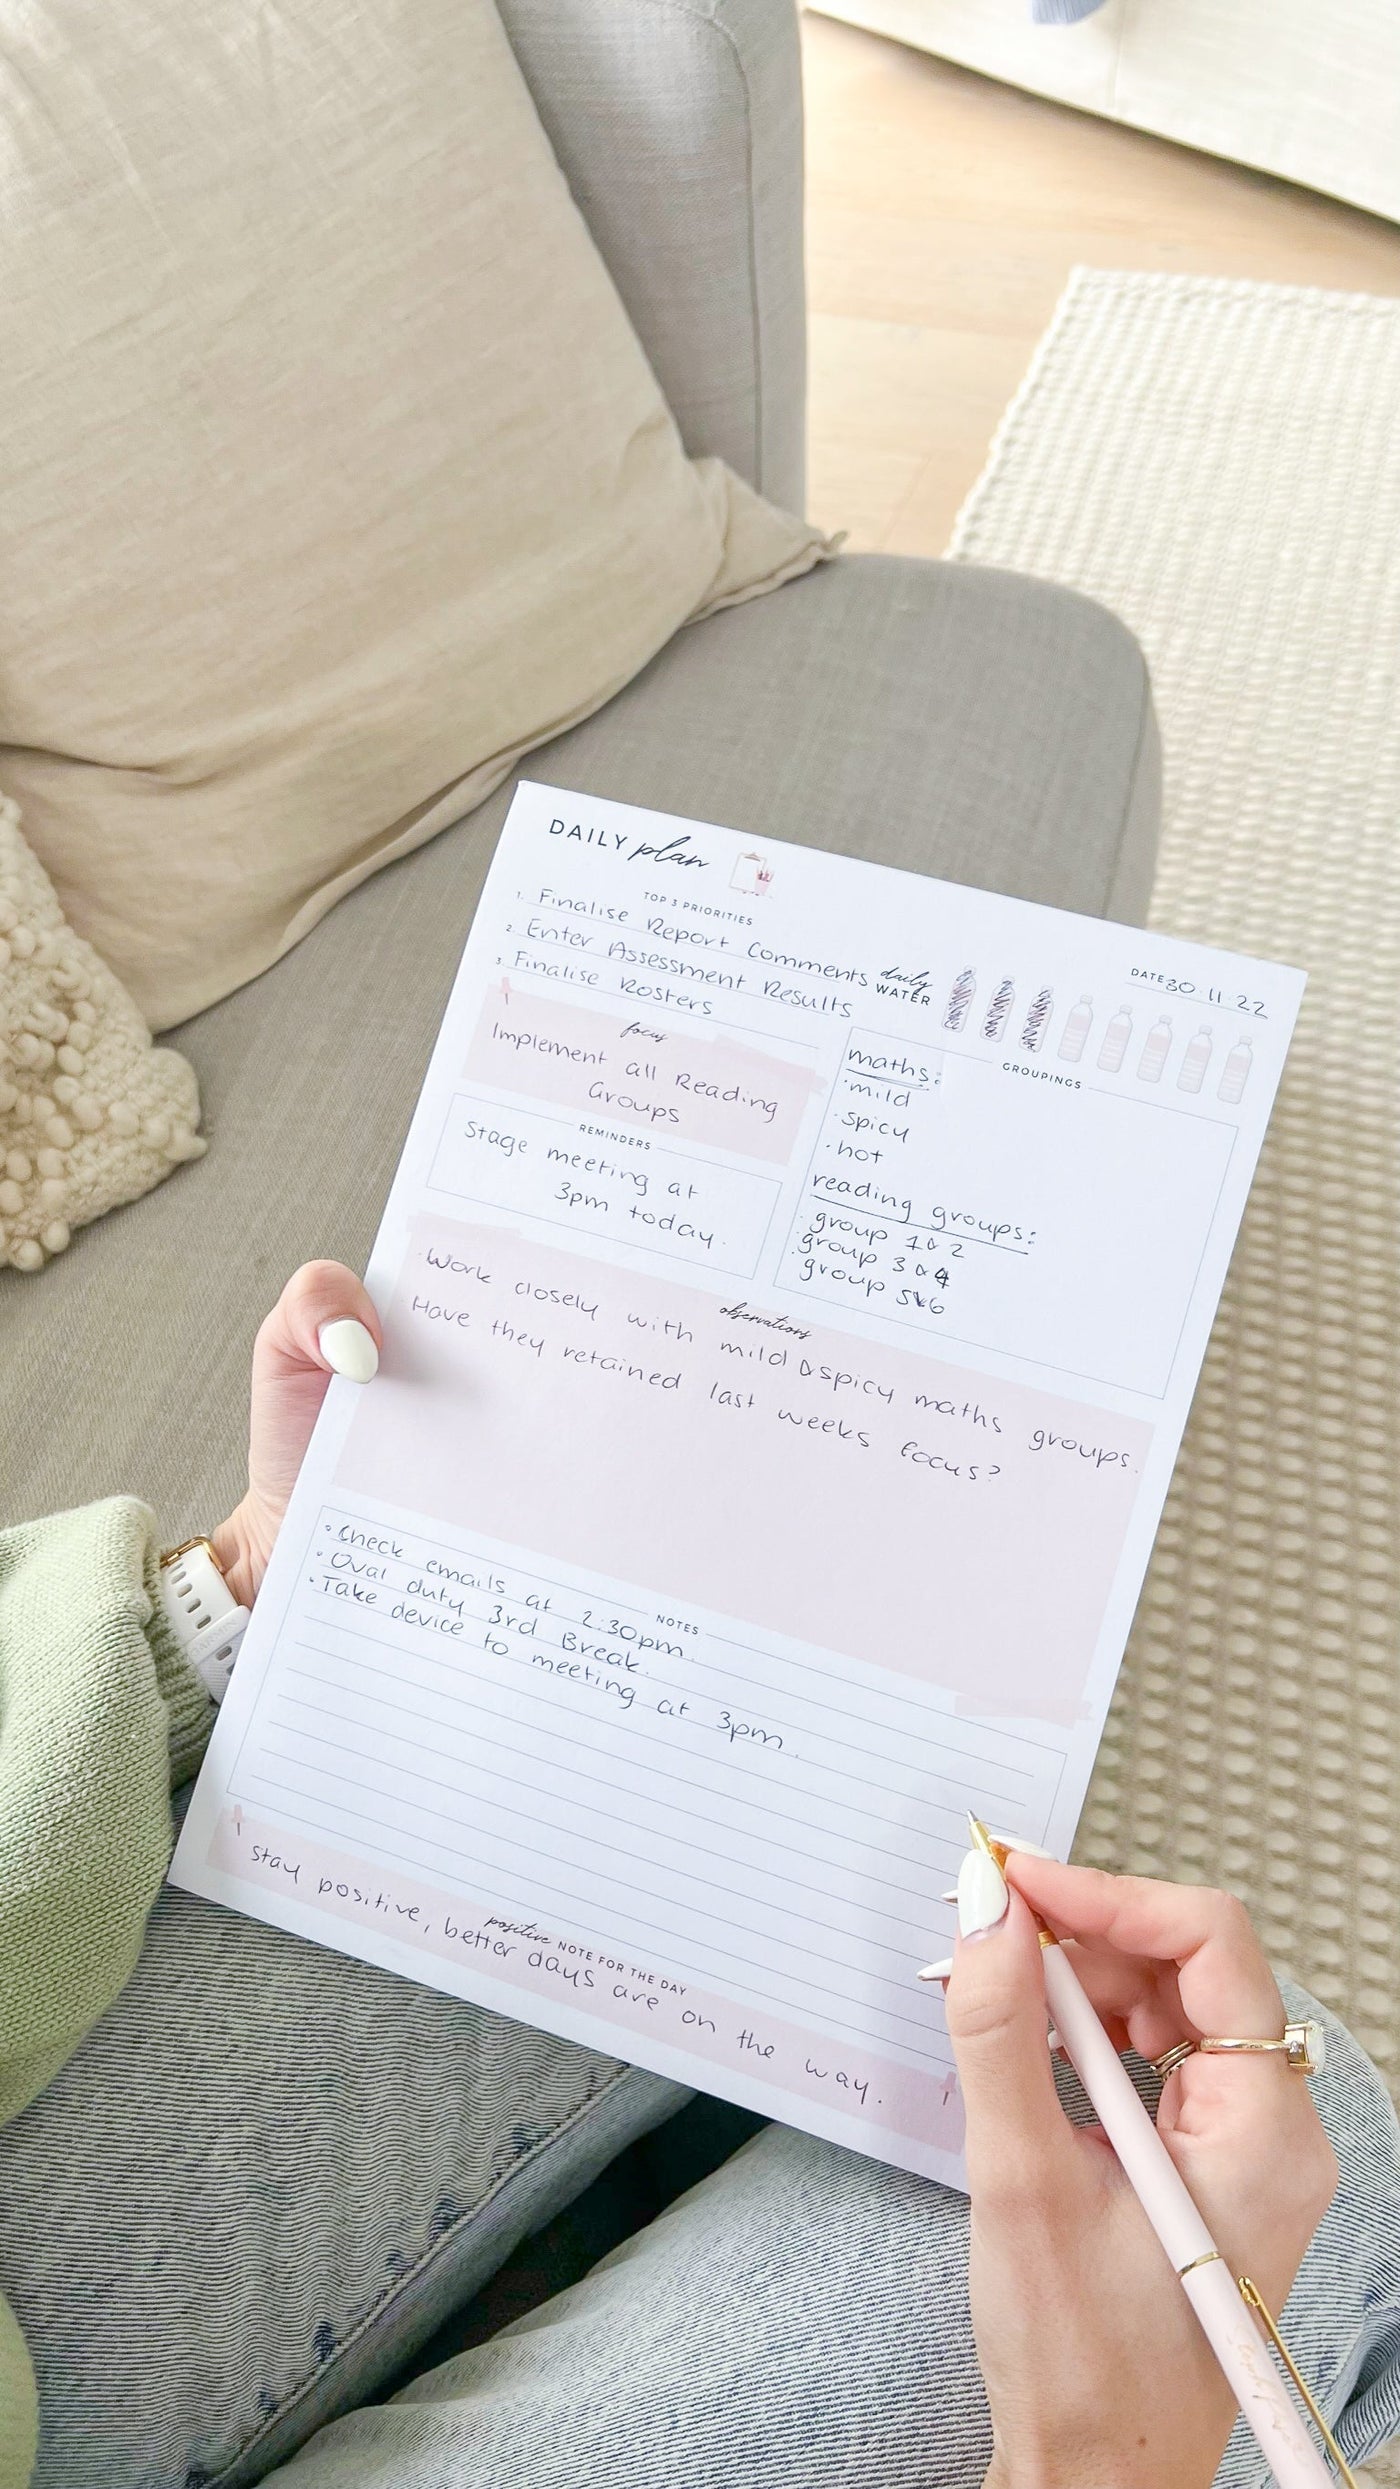 DAILY plan
TOP 3 PRIORITIES
1. Finalise Report Comments
2. Enter Assessment Results
3. Finalise Rosters
daily
WATER
DATE 30.11.22
focus
Implement all Reading
Groups
REMINDERS
Stage meeting at
3pm today.
GROUPINGS
maths:
·mild
·spicy
·hot
reading groups:
·group 1 & 2
·group 3 & 4
·group 5 & 6
observations
·Work closely with mild & spicy maths groups.
Have they retained last weeks focus?
NOTES
·Check emails at 2:30pm.
·Oval duty 3rd Break.
·Take device to meeting at 3pm.
positive NOTE FOR THE DAY
stay positive, better days are on the way.